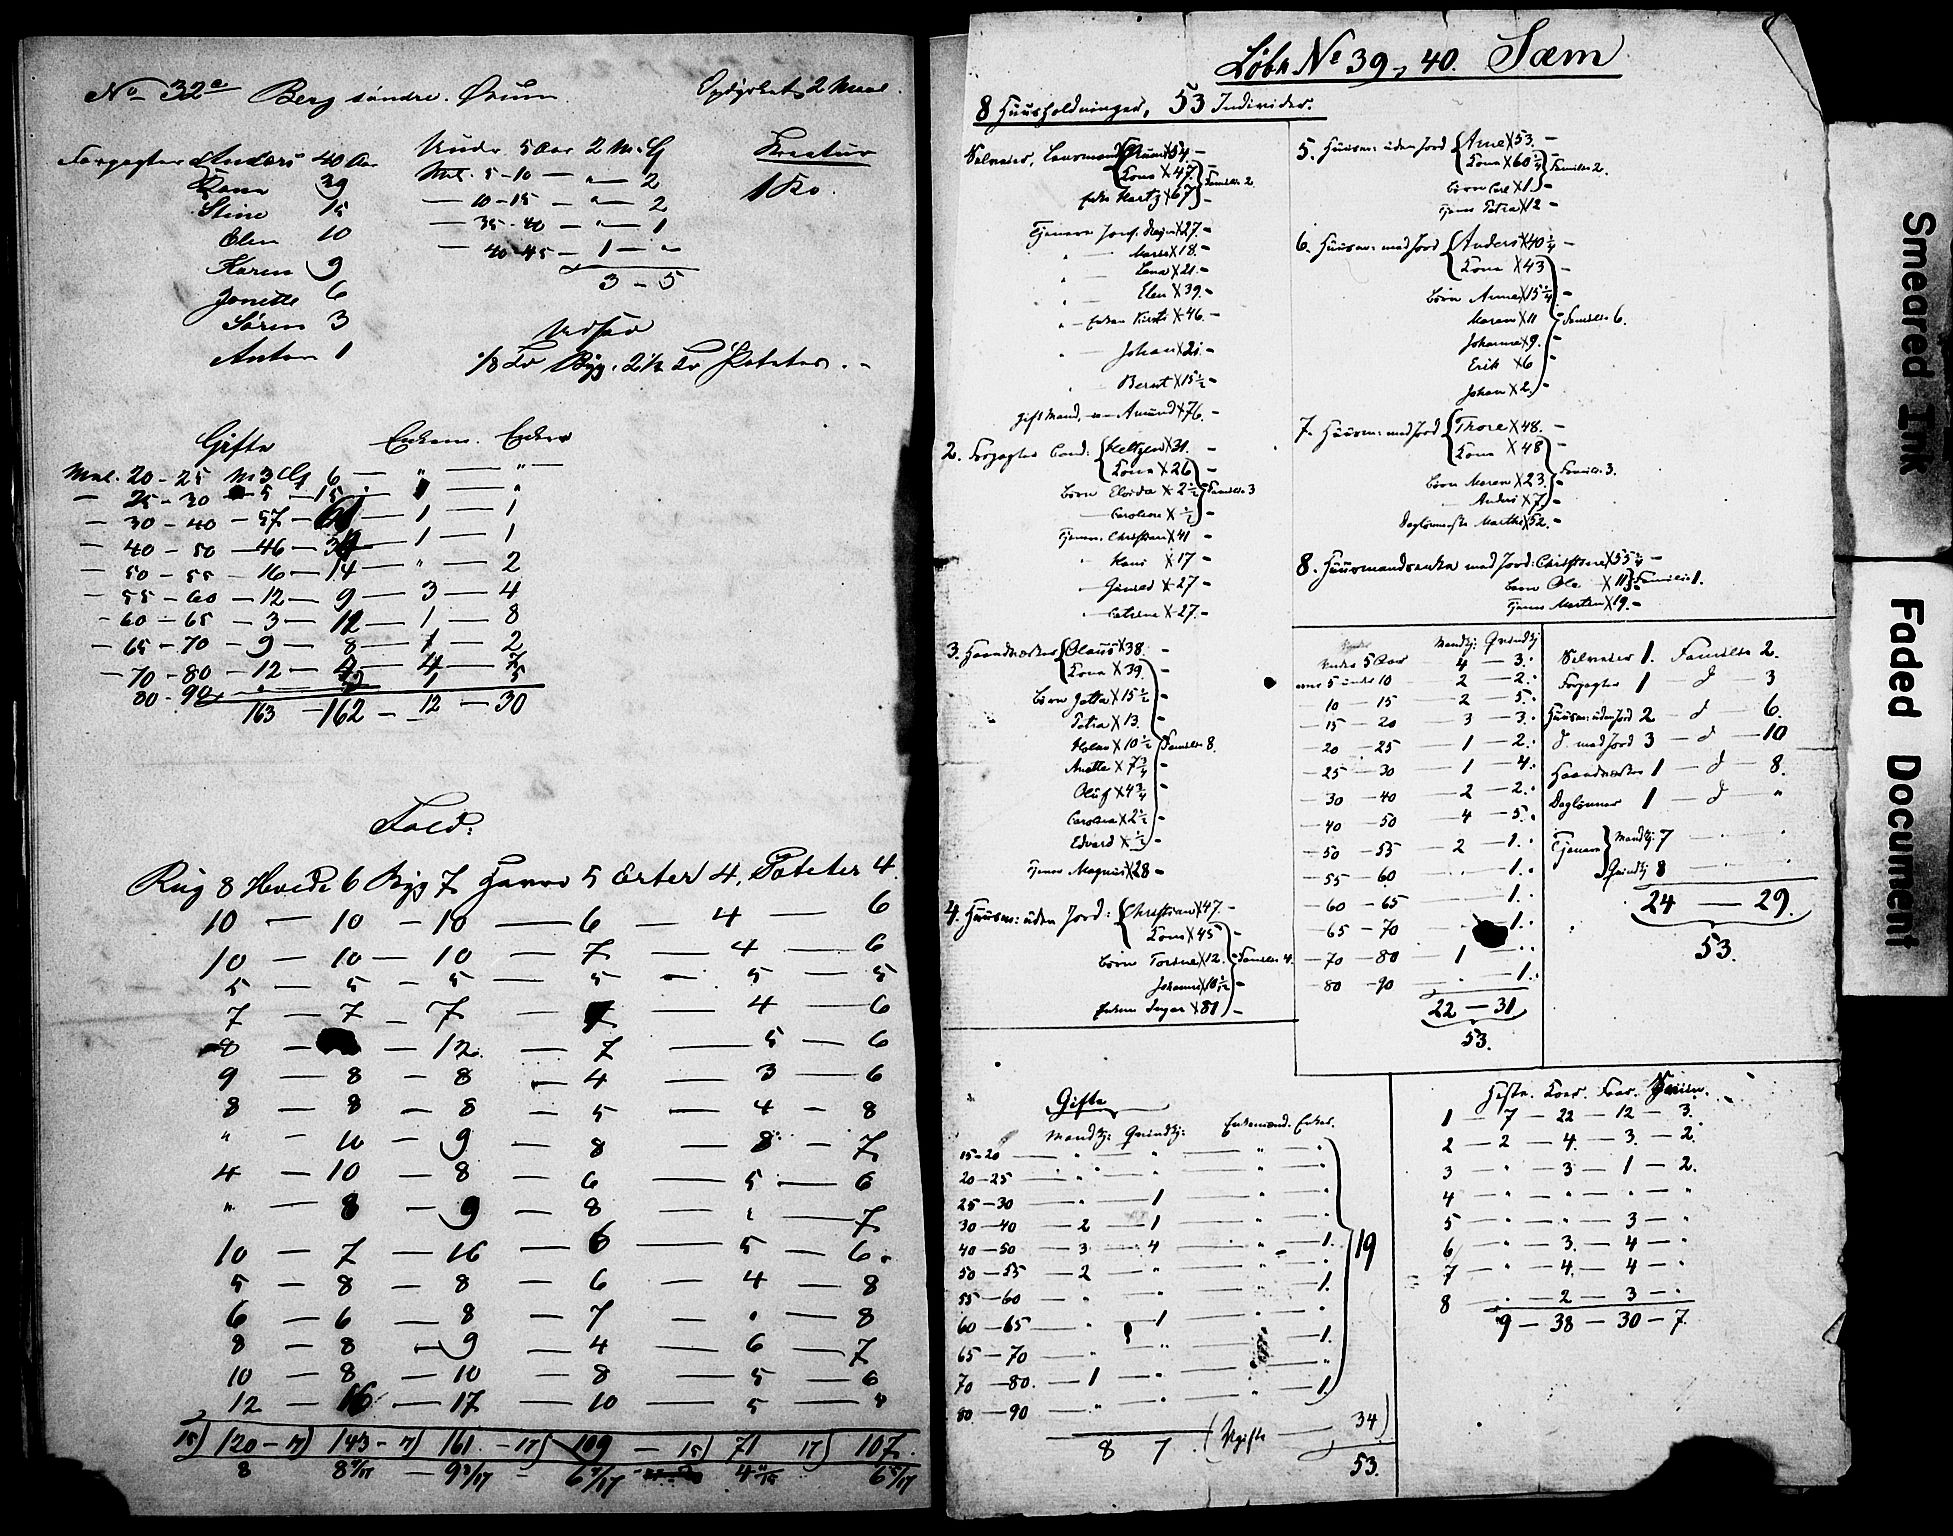 No 32e Berg söndre. Ørum Opdyrket 2 Maal.
Forpagter Anders 40 Aar
Kona 39
Stine 15
Elen 10
Karen 9
Janette 6
Sören 3
Anton 1
Under 5 Aar 2 M. 
Mel. 5-10 — " — 2
— 10-15 — " — 2
— 35-40 — " — 1
— 40-45 — 1 — "
3 — 5
Kreatur
1 Ko.
Udsæd
1/8 Byg. 2 1/2 Poteter.
Gifte Enkem. Enker
Mel. 20-25 M 3 6 — " — "
— 25-30 — 5 — 15
— 30-40 — 57 — 1 — 1
— 40-50 — 46 — 1 — 1
— 50-55 — 16 — 14 — " — 2
— 55-60 — 12 — 9 — 3 — 4
— 60-65 — 3 — 12 — 1 — 8
— 65-70 — 9 — 8 — 1 — 2
— 70-80 — 12 — 4 — 4 — 7
80-90 1 5
163 — 162 — 12 — 30
Fold:
Rug 8 Hvede 6 Byg 7 Havre 5 Erter 4, Poteter 4.
10 — 10 — 10 — 6 — 4 — 6
10 — 10 — 10 — 7 — 4 — 6
5 — 5 — 5 — 5 — 5 — 5
7 — 7 — 7 — 7 — 4 — 6
8 — — 12 — 7 — 5 — 6
9 — 8 — 8 — 4 — 3 — 6
8 — 8 — 8 — 5 — 4 — 8
" — 10 — 9 — 8 — 8 — 7
4 — 10 — 8 — 6 — 5 — 6
" — 8 — 9 — 8 — — 7
10 — 7 — 16 — 6 — 5 — 6
5 — 8 — 8 — 6 — 4 — 8
6 — 6 — 8 — 7 — " — 8
8 — 8 — 9 — 4 — 6 — 7
10 — 8 — 10 — 8 — 5 — 6
12 — 16 — 17 — 10 — 5 — "
15) 120 — 17) 143 — 17) 161 — 17) 109 — 15) 71 17) 107
8 8 7/17 — 9 8/17 — 6 7/17 4 11/15 6 5/17
Løbe No 39, 40. Sæm
8 Huusholdninger, 53 Individer.
Selveier, Lensmand X 54 —
Kona X 47 Familie 2
Enke X 67 —
Tjenere X 27 —
Maria X 18 —
Lena X 21 —
Elen X 39 —
Enken Kirsti X 46 —
Johan X 21 —
Bernt X 15 1/2 —
gift Mand, Amund X 76 —
2. Forpagter Cand: X 31 —
Kona X 26 —
Børn X 2 1/2 Familie 3
Caroline X 1/2 —
Tjener: Christian X 41
" Kari X 17 —
" X 27 —
" Catrine X 27 —
3. Haandværker Olaus X 38 —
Kona X 39 —
Børn Jetta X 15 1/2 —
Petra X 13 —
X 10 1/2 Familie 8.
Anette X 7 3/4 —
Oluf X 4 3/4 —
Carolina X 2 1/2 —
Edvard X 1/2 —
Tjener Magnus X 28 —
4. Huusm: uden Jord: Christian X 47 —
Kona X 45 —
Børn X 12. Familie 4.
Johanne X 10 1/2 —
Enken Inger X 81 —
5. Huusm: uden Jord Arne X 53 —
Kona X 60 1/4 Familie 2.
Børn Carl X 1 —
Tjener Petra X 12 —
6. Huusm: med Jord Anders X 40 1/4 —
Kona X 43 —
Børn Anne X 15 1/4
Maren X 11 Familie 6.
Johanna X 9 —
Erik X 6 —
Johan X 2 —
7. Huusm: med Jord Thore X 48 —
Kona X 48 —
Børn Maren X 23 Familie 3.
Anders X 7 —
Marthe X 52 —
8. Huusmandsenke med Jord: Christine X 55 3/4 —
Børn Ole X 11 Familie 1.
Tjener Martin X 19 —
Mandkj: Qvindkj
Under 5 Aar — 4 — 3
5 under 10 — 2 — 2
— 10 — 15 — 2 — 5
— 15 — 20 — 3 — 3
— 20 — 25 — 1 — 2
— 25 — 30 — 1 — 4
— 30 — 40 — 2 — 2
— 40 — 50 — 4 — 5
— 50 — 55 — 2 — 1
— 55 — 60 — " — 1
— 60 — 65 — " — 1
— 65 — 70 — " — 1
— 70 — 80 — 1 — "
— 80 — 90 — " — 1
22 — 31
53.
Selveier 1. Familie 2.
Forpagter 1 — d — 3
Huusm: uden Jord 2 — d — 6.
d. med Jord 3 — d — 10
Haandværker 1 — d — 8.
Daglönner 1 — d — "
Tjenere Mandkj: 7
Qvindkj 8
24 — 29.
53.
Gifte
Mandkj: Qvindkj: Enkemænd. Enker.
15-20 — " — " — " — "
20-25 — " — " — " — "
25-30 — " — 1 — " — "
30-40 — 2 — 1 — " — "
40-50 — 3 — 4 — " — 1
50-55 — 2 — " — " — "
55-60 — " — " — " — 1
60-65 — " — 1 — " — "
65-70 — " — " — " — 1
70-80 — 1 — " — " — "
80-90 — " — " — " — 1
19
8 7 (Ugifte — 34)
53.
Heste. Koer. Faar. Sviin.
1 — 7 — 22 — 12 — 3.
2 — 2 — 4 — 3 — 2
3 — " — 3 — 1 — 2.
4 — " — " — " — "
5 — " — " — 3 — "
6 — " — 3 — 4 — "
7 — " — 4 — 4 — "
8 — " — 2 — 3 — "
9 — 38 — 30 — 7
Smeared Ink
Faded Document